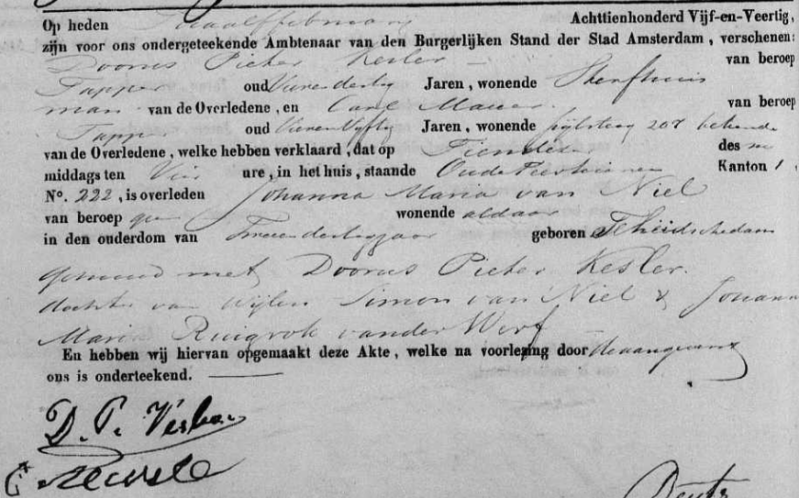 Op heden Twaalf february Achttienhonderd Vijf-en-Veertig,
zijn voor ons ondergeteekende Ambtenaar van den Burgerlijken Stand der Stad Amsterdam, verschenen:
Doorus Pieter Kesler van beroep
Tapper oud Vierendertig Jaren, wonende Sterfhuis
man van de Overledene, en Carl van beroep
Tapper oud Vierenvyftig Jaren, wonende 207 bekende
van de Overledene, welke hebben verklaard, dat op Tiendezer des na
middags ten Vier ure, in het huis, staande Kanton 1,
No. 222, is overleden Johanna Maria van Niel
van beroep geen wonende aldaar
in den ouderdom van Tweeendertig jaar geboren te
gehuwd met Doorus Pieter Kesler.
dochter van wijlen Simon van Niel & Johanna
Maria Ruigrok vander Werf
En hebben wij hiervan opgemaakt deze Akte, welke na voorlezing door de aangevers
ons is onderteekend.
D. P.